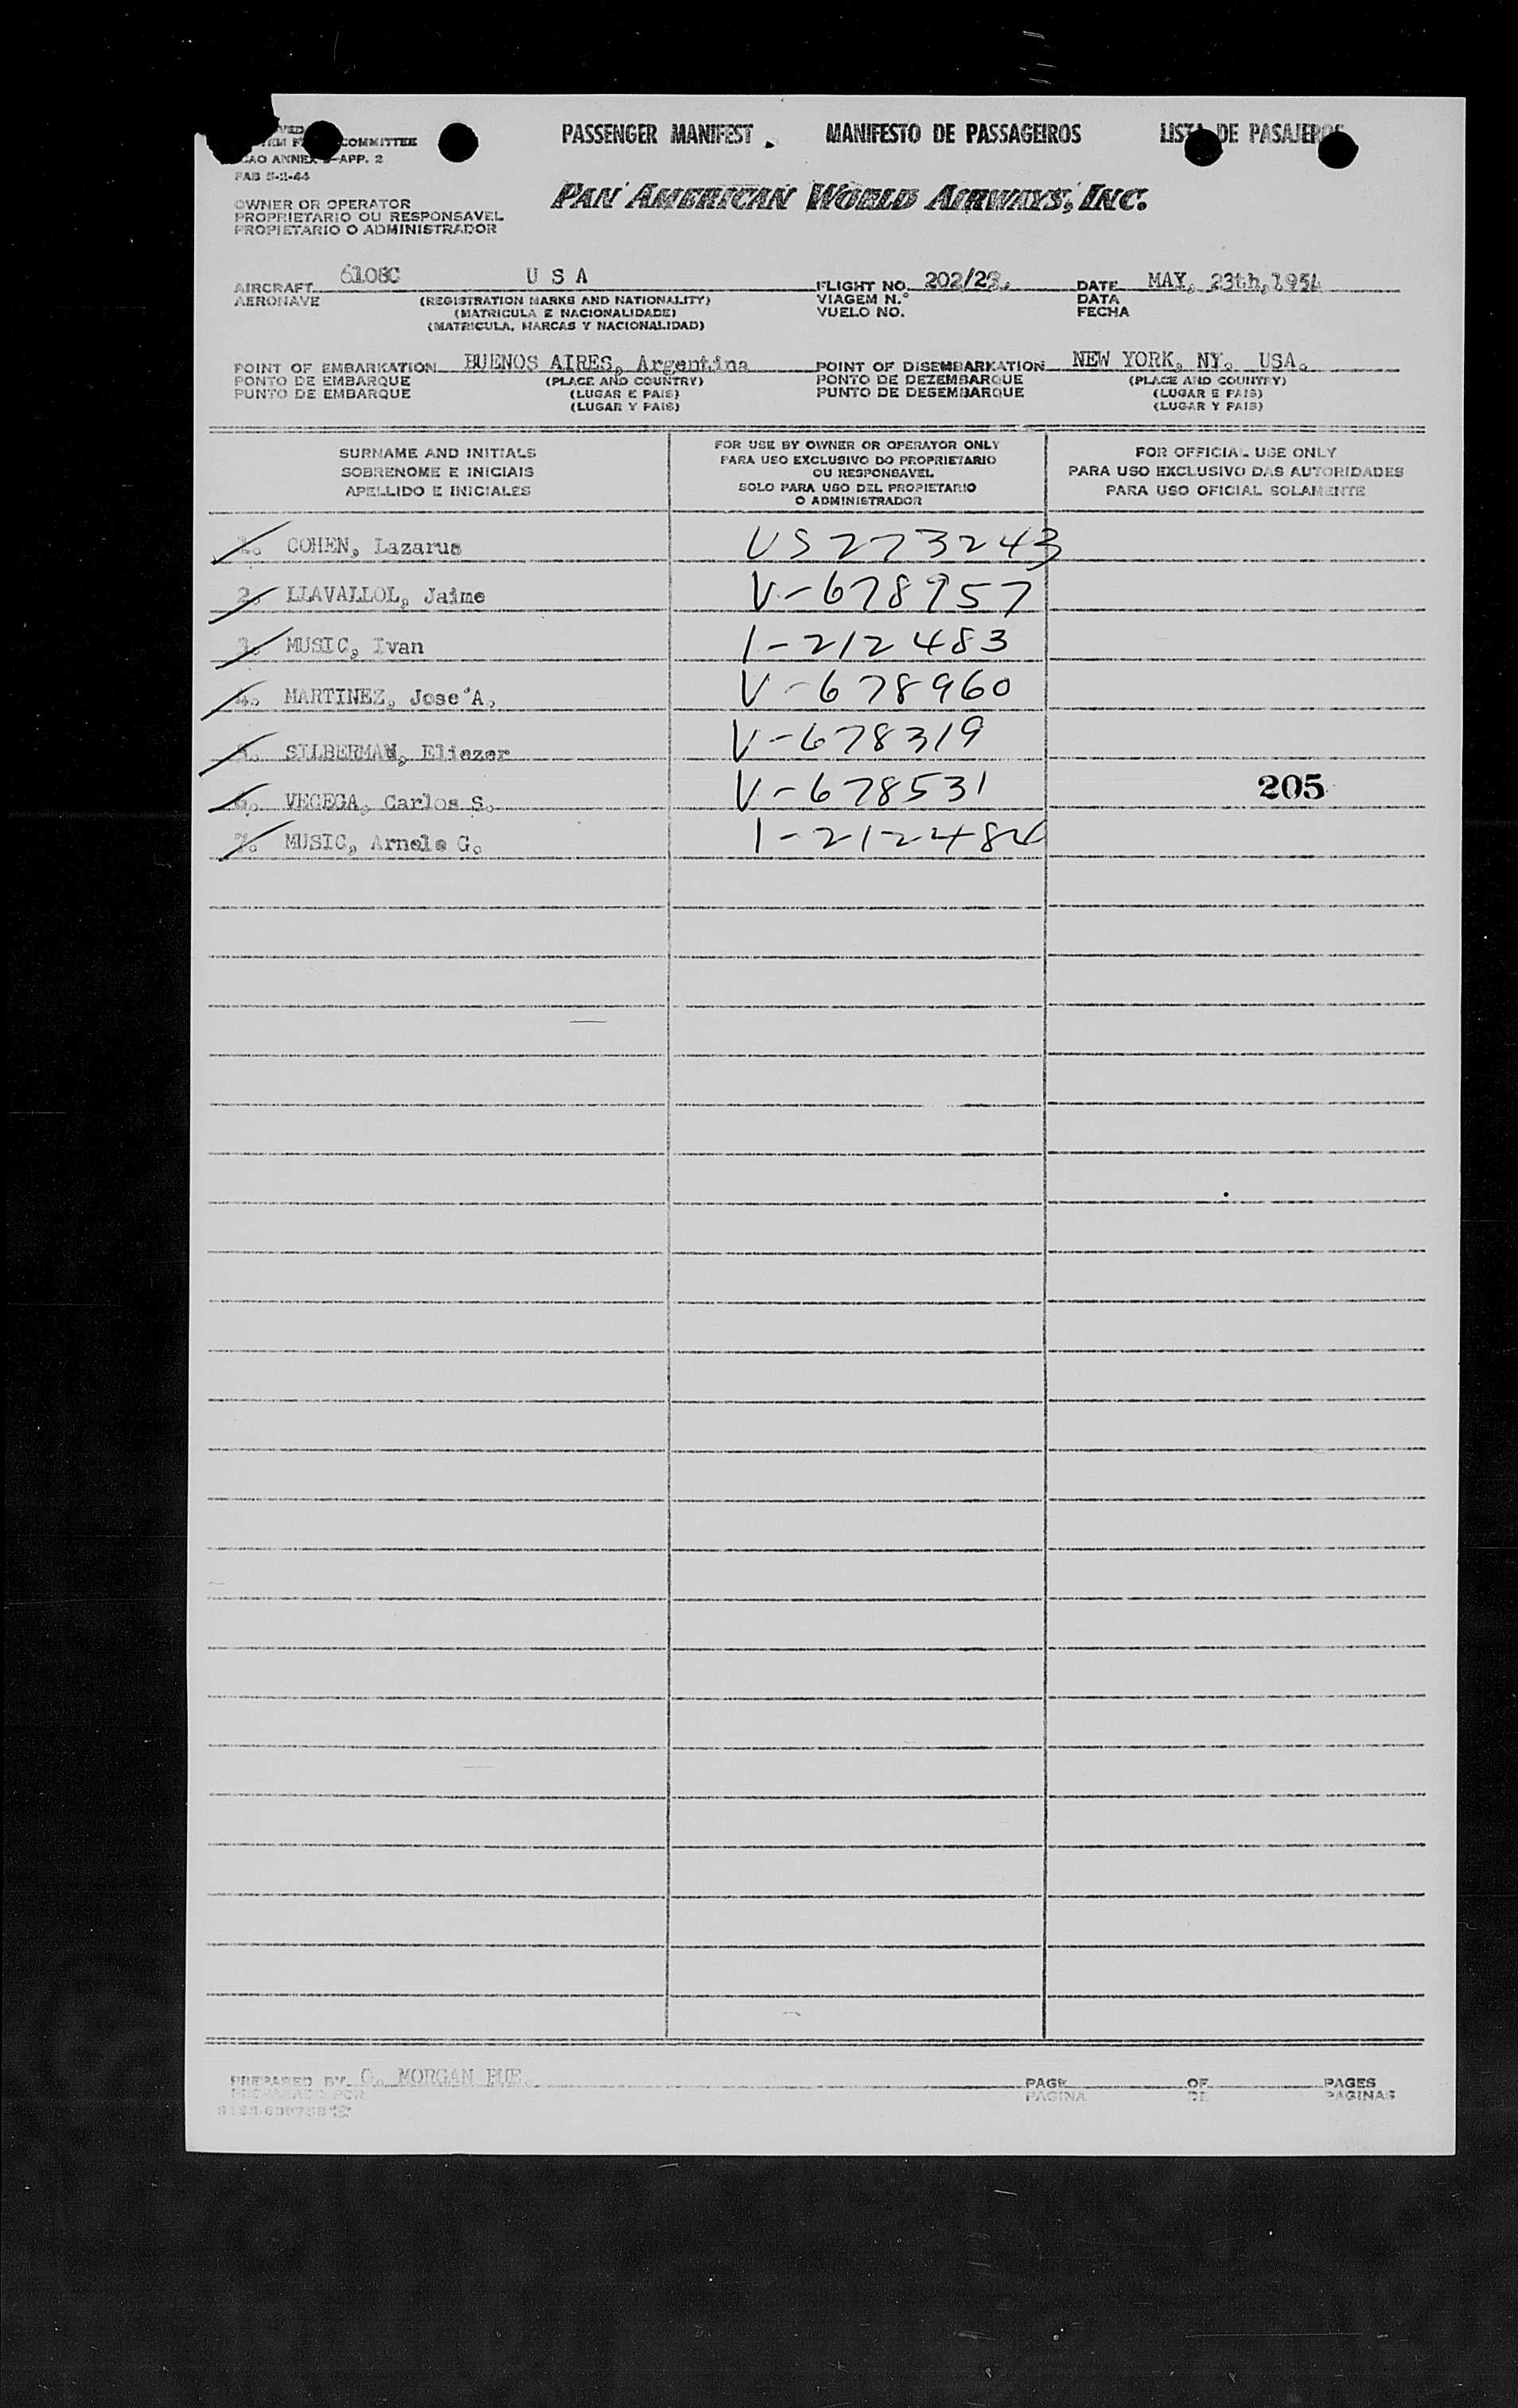 PASSENGER MANIFEST MANIFESTO DE PASSAGEIROS LISTA DE PASAJEROS
COMMITTEE
ANNEX APP. 2
PAN AMERICAN WORLD AIRWAYS, INC.
OWNER OR OPERATOR
PROPRIETARIO OU RESPONSAVEL
PROPIETARIO O ADMINISTRADOR
AIRCRAFT 6108C U S A FLIGHT NO. 202/23. DATE MAY, 23th, 1954
AERONAVE (REGISTRATION MARKS AND NATIONALITY) VIAGEM N.º DATA
(MATRICULA E NACIONALIDADE) VUELO NO. FECHA
(MATRICULA, MARCAS Y NACIONALIDAD)
POINT OF EMBARKATION BUENOS AIRES, Argentina POINT OF DISEMBARKATION NEW YORK, NY. USA.
PONTO DE EMBARQUE (PLACE AND COUNTRY) PONTO DE DEZEMBARQUE (PLACE AND COUNTRY)
PUNTO DE EMBARQUE (LUGAR E PAIS) PUNTO DE DESEMBARQUE (LUGAR E PAIS)
(LUGAR Y PAIS) (LUGAR Y PAIS)
SURNAME AND INITIALS
SOBRENOME E INICIAIS
APELLIDO E INICIALES
FOR USE BY OWNER OR OPERATOR ONLY
PARA USO EXCLUSIVO DO PROPRIETARIO
OU RESPONSAVEL
SOLO PARA USO DEL PROPIETARIO
O ADMINISTRADOR
FOR OFFICIAL USE ONLY
PARA USO EXCLUSIVO DAS AUTORIDADES
PARA USO OFICIAL SOLAMENTE
1. COHEN, Lazarus US273243
2. LLAVALLOL, Jaime V-678957
3. MUSIC, Ivan 1-212483
4. MARTINEZ, Jose A. V-678960
5. SILBERMAN, Eliezer V-678319
6. VECEGA, Carlos S. V-678531 205
7. MUSIC, Arnele G. 1-212484
PREPARED BY G. MORGAN BUE. PAGE OF PAGES
PREPARADO POR PAGINA DE PAGINAS